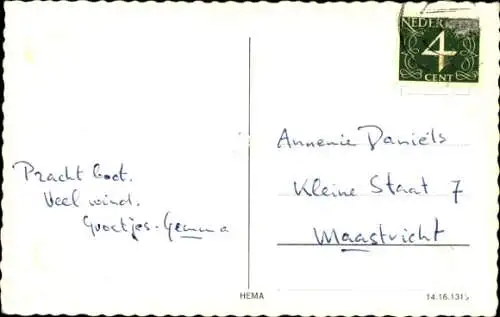 NEDERL
4
CENT
Annemie Daniëls
Pracht boot.
Veel wind.
Groetjes-Gemma
Kleine Staat 7
Maastricht
HEMA
14.16.1315